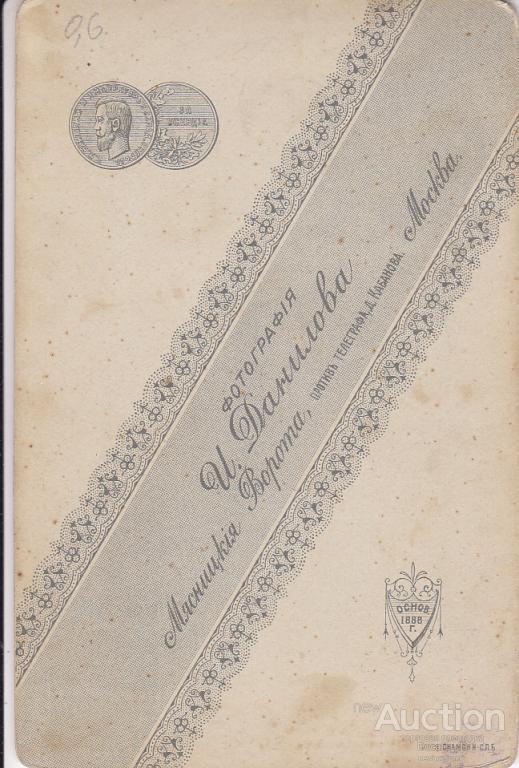 0,6.
ЗА
УСЕРДІЕ
ФОТОГРАФІЯ
И. Данилова
Мясницкія Ворота, противъ телеграфа, д. Кабанова. Москва.
ОСНОВ.
1888
Г.
Auction